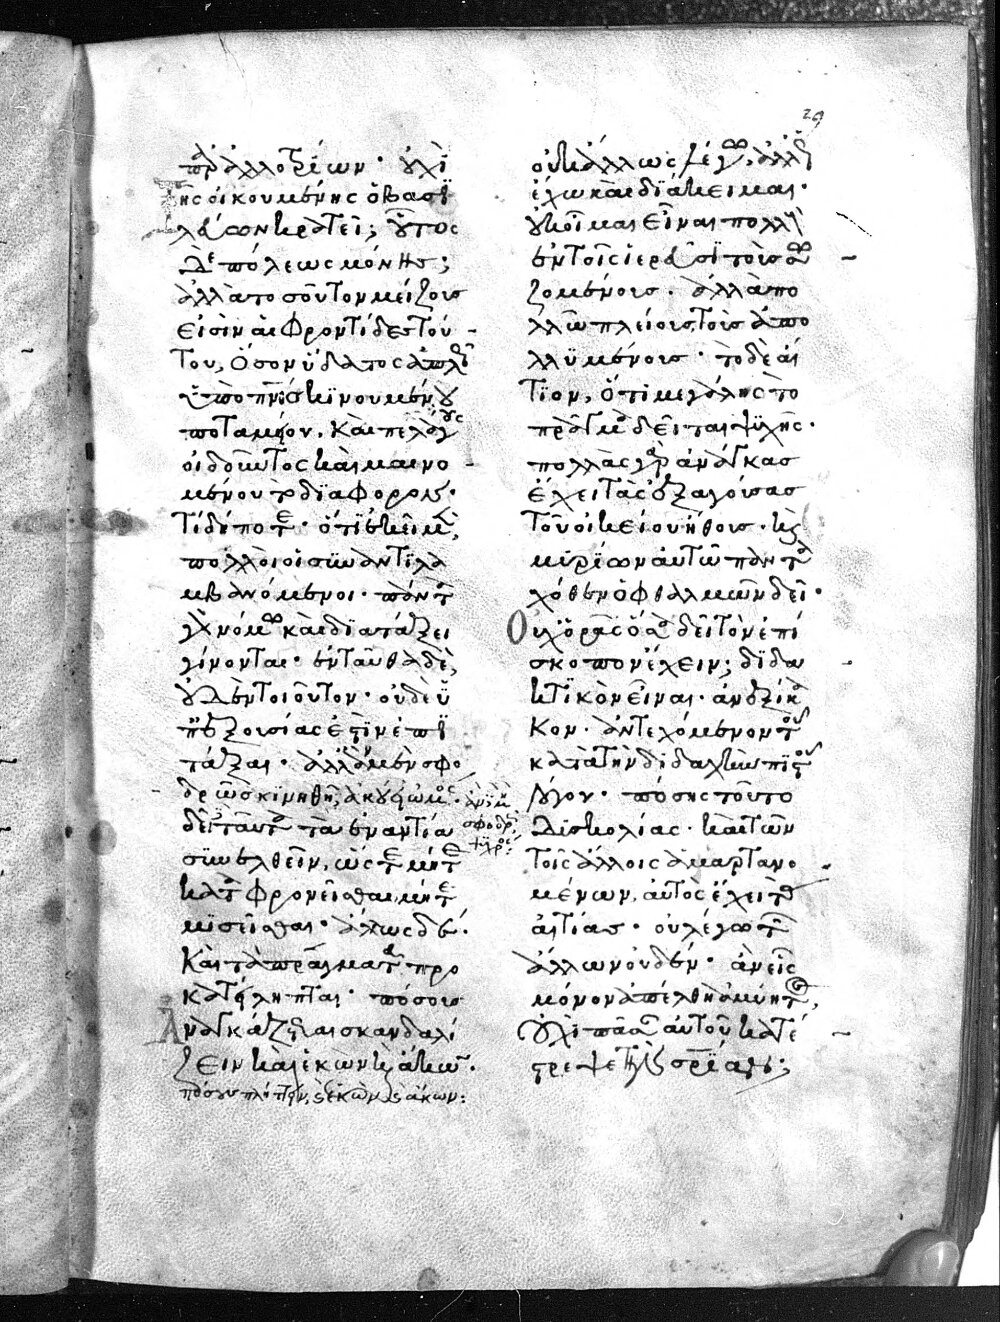 29
παρ ἀλλοτρίων· οὐχὶ
τῆς οἰκουμένης ὁ βασι
λεύων κρατεῖ; οὗτος
δὲ πόλεως μόνης;
ἀλλὰ τοσοῦτον μείζους
εἰσὶν αἱ φροντίδες τού
του, ὅσον ὕδατος ἁπλῶς
ὑπὸ πν̅ς κινουμένου
ποταμίου, καὶ πελάγους
οἰδοῦντος καὶ μαινο
μένου τὸ διάφορον·
τί δήποτε· ὅτι ἐκεῖ μὲν,
πολλοὶ οἱ συναντιλα
μβανόμενοι· πάντα
γὰρ νόμῳ καὶ διατάξει
γίνονται· ἐνταῦθα δὲ,
οὐδὲν τοιοῦτον· οὐδὲ γὰρ
ἀπ ἐξουσίας ἐστὶν ἐπι
τάξαι· ἀλλὰ ἂν μὲν σφο
δρῶς κινηθῇ, ἀκούει ὠμός· ἂν μὴ
σφοδρῶς
ψυχρός·
δεῖ ταῦτα τὰ ἐναντία
συνελθεῖν, ὥστε μήτε
καταφρονεῖσθαι, μήτε
μισεῖσθαι· ἄλλως δὲ·
Καὶ τὰ πράγματα προ
καταλήπται· πόσους
ἀναγκάζεται σκανδαλί
ζειν καὶ ἑκὼν καὶ ἄκων·
πόσους πλήττειν, καὶ ἑκὼν καὶ ἄκων:
οὐκ ἄλλως λέγω, ἀλλ ὡς
ἔχω καὶ διάκειμαι·
οὐκ οἶμαι εἶναι πολλοὺς
ἐν τοῖς ἱερεῦσι τοὺς σω
ζομένους· ἀλλὰ πο
λλῷ πλείους τοὺς ἀπο
λλυμένους· τὸ δὲ αἴ
τιον, ὅτι μεγάλης τὸ
πρᾶγμα δεῖται ψυχῆς·
πολλὰς γὰρ ἀνάγκας
ἔχει τὰς ἐξαγούσας
τοῦ οἰκείου ἤθους· καὶ
μυρίων αὐτῷ πάντο
χόθεν ὀφθαλμῶν δεῖ·
Οὐχ ὁρᾷς ὅσα δεῖ τὸν ἐπί
σκοπον ἔχειν; διδα
κτικὸν εἶναι· ἀνεξίκα
κον· ἀντεχόμενον τοῦ
κατὰ τὴν διδαχὴν πιστοῦ
λόγου· πόσης τοῦτο
δυσκολίας· καὶ τῶν
τοῖς ἄλλοις ἁμαρτανο
μένων, αὐτὸς ἔχει τὰς
αἰτίας· οὐ λέγω τῶν
ἄλλων οὐδὲν· ἂν εἷς
μόνον ἀπέλθῃ ἀμύητος,
οὐχὶ πᾶσαν αὐτοῦ κατέ
στρεψε τὴν σωτηρίαν;